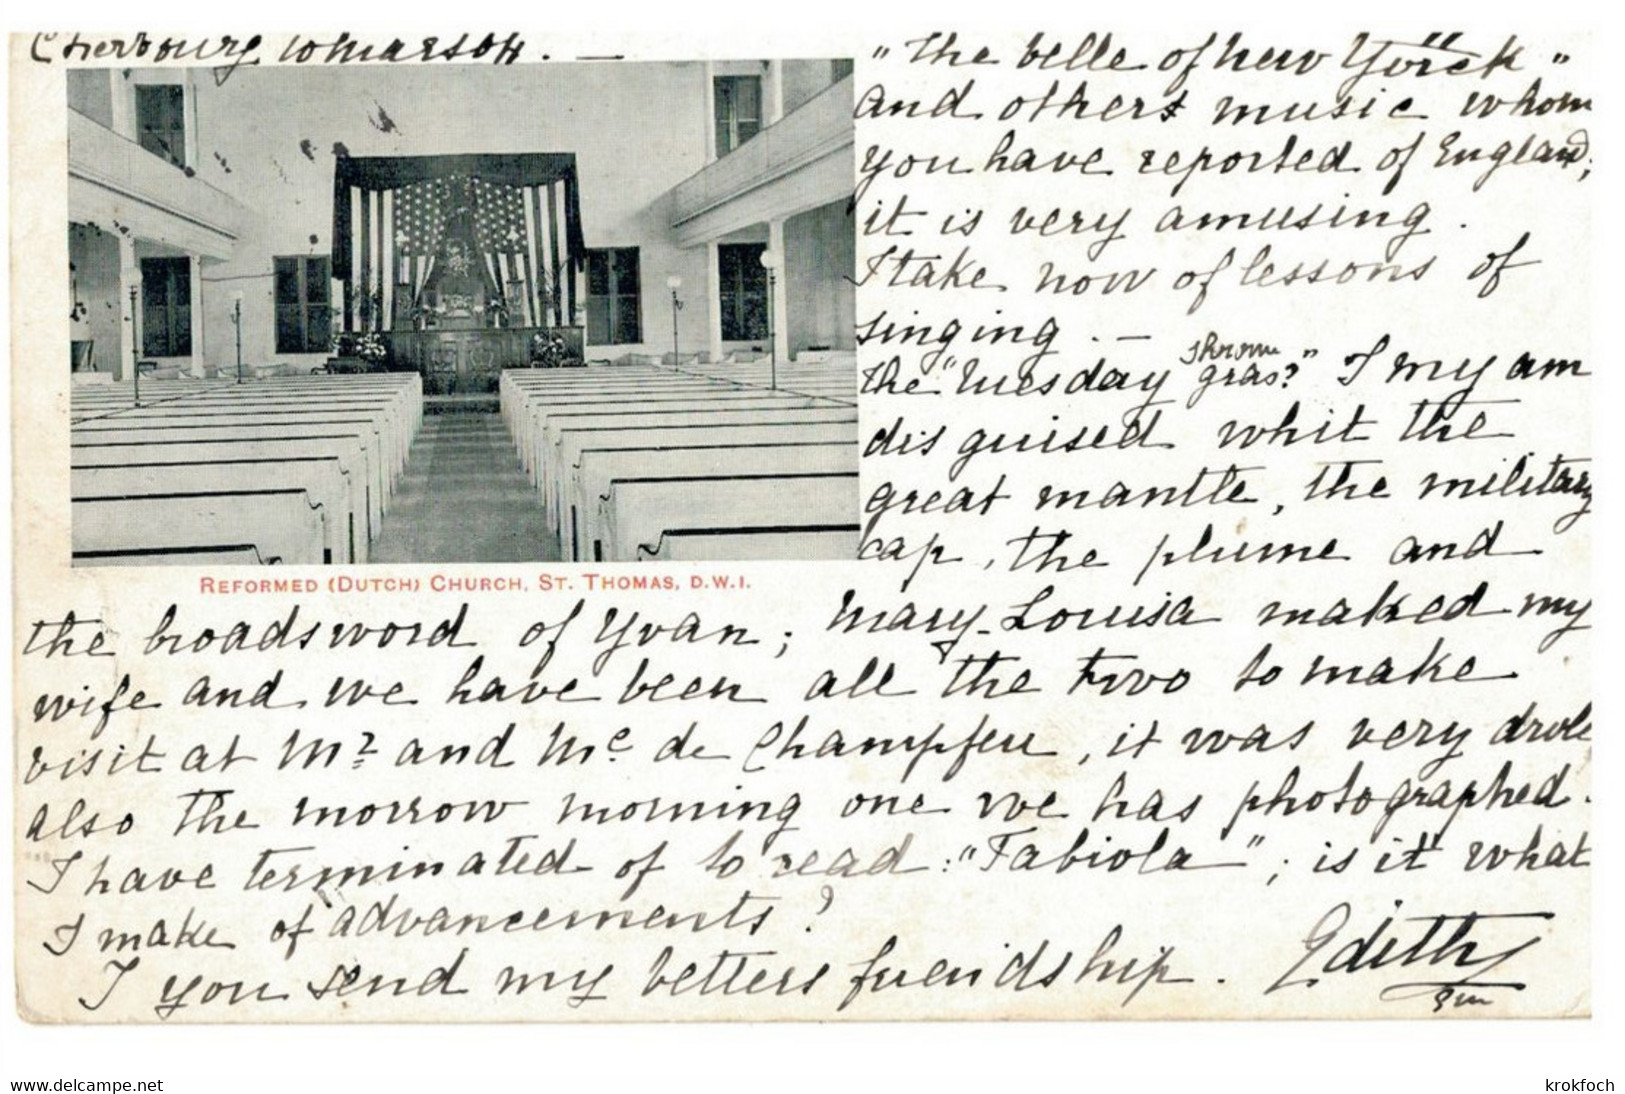 Cherbourg
"the belle of new Yorck"
and others music whom
you have reported of England;
it is very amusing.
I take now of lessons of
singing. —
the "Tuesday gras?" I my am
disguised whit the
great mantle, the military
cap, the plume and
REFORMED (DUTCH) CHURCH, ST. THOMAS, D.W.I.
the broadsword of Yvan; Mary-Louisa maked my
wife and we have been all the two to make
visit at Mr and Me de Champfeu, it was very drole
also the morrow morning one we has photographed.
I have terminated of to read: "Fabiola"; is it what
I make of advancements?
I you send my betters friendship. Edith
www.delcampe.net
krokfoch